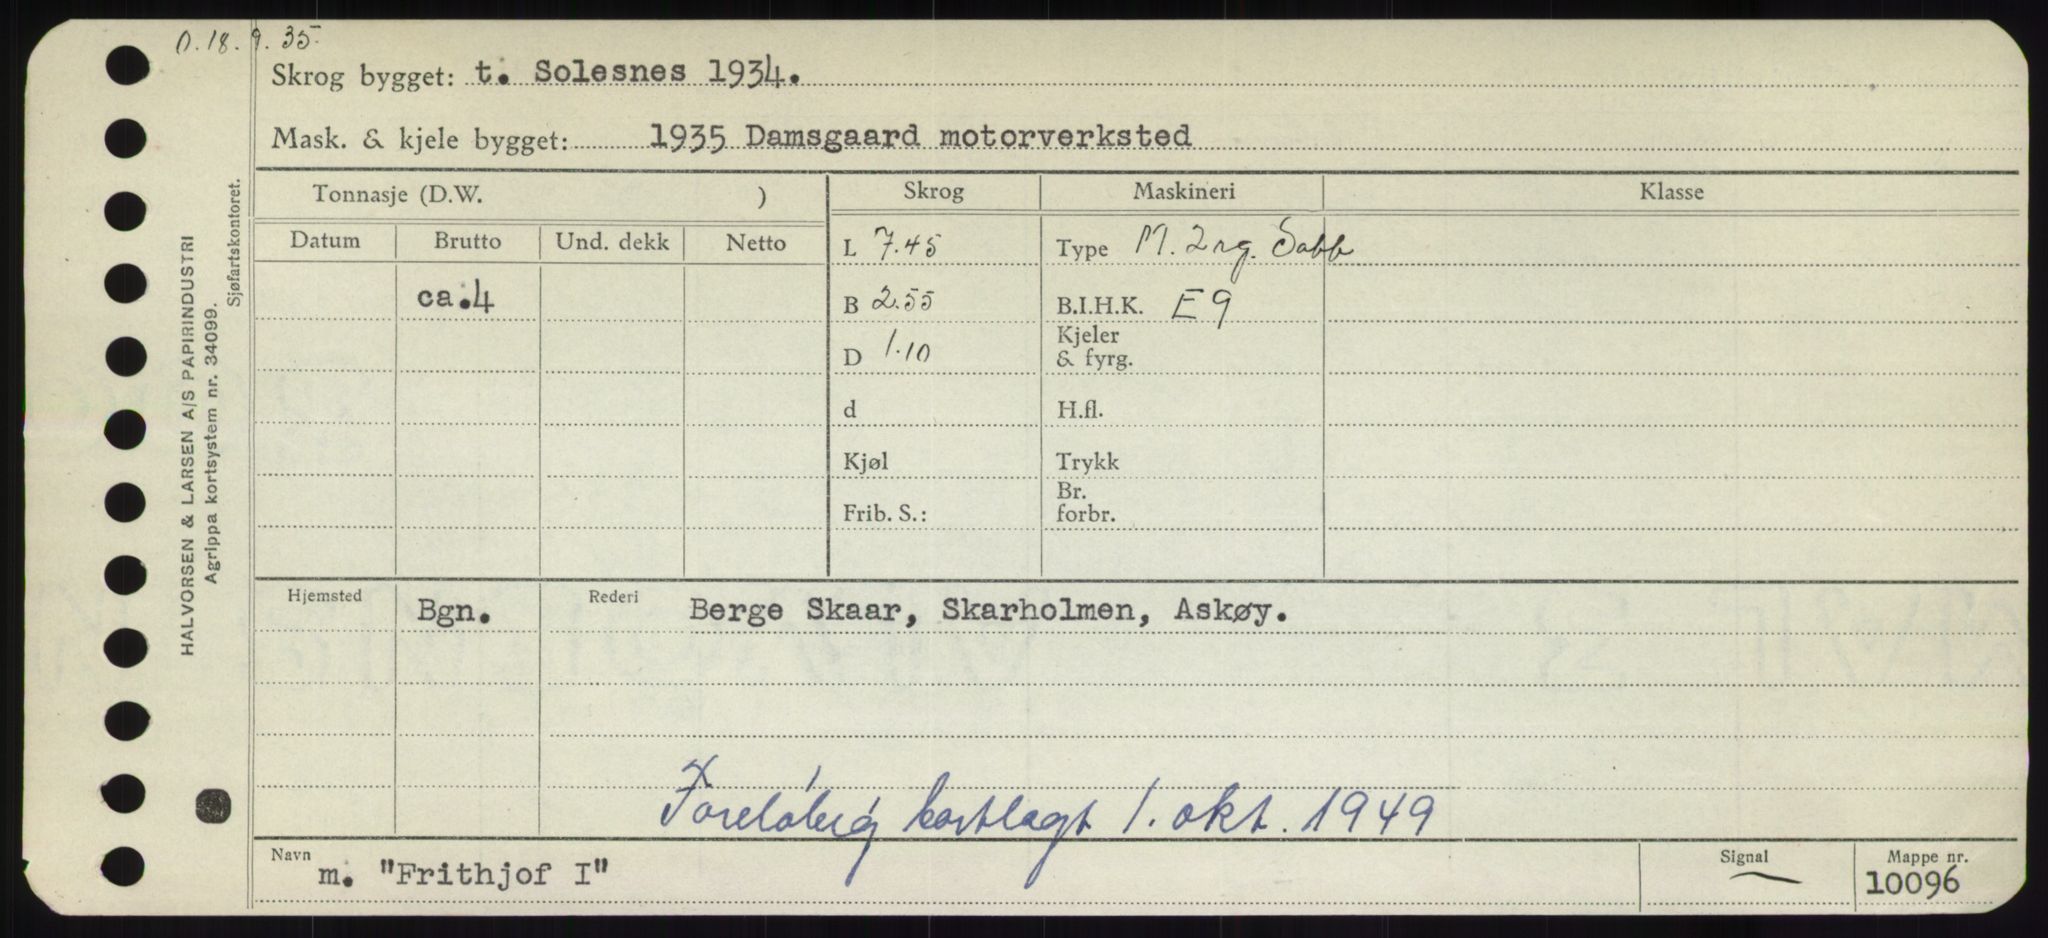 D. 18. 9. 35.
Skrog bygget: t. Solesnes 1934.
Mask. & kjele bygget: 1935 Damsgaard motorverksted
Tonnasje (D.W. ) Skrog Maskineri Klasse
Datum Brutto Und. dekk Netto L 7.45 Type M. 2 sg. Sabb
ca.4 B 2.55 B.I.H.K. E 9
D 1.10 Kjeler & fyrg.
d H.fl.
Kjøl Trykk
Frib. S.: Br. forbr.
Hjemsted Bgn. Rederi Berge Skaar, Skarholmen, Askøy.
Foreløbig bortlagt 1. okt. 1949
Navn m. "Frithjof I" Signal Mappe nr. 10096
HALVORSEN & LARSEN A/S PAPIRINDUSTRI
Agrippa kortsystem nr. 34099.
Sjøfartskontoret.